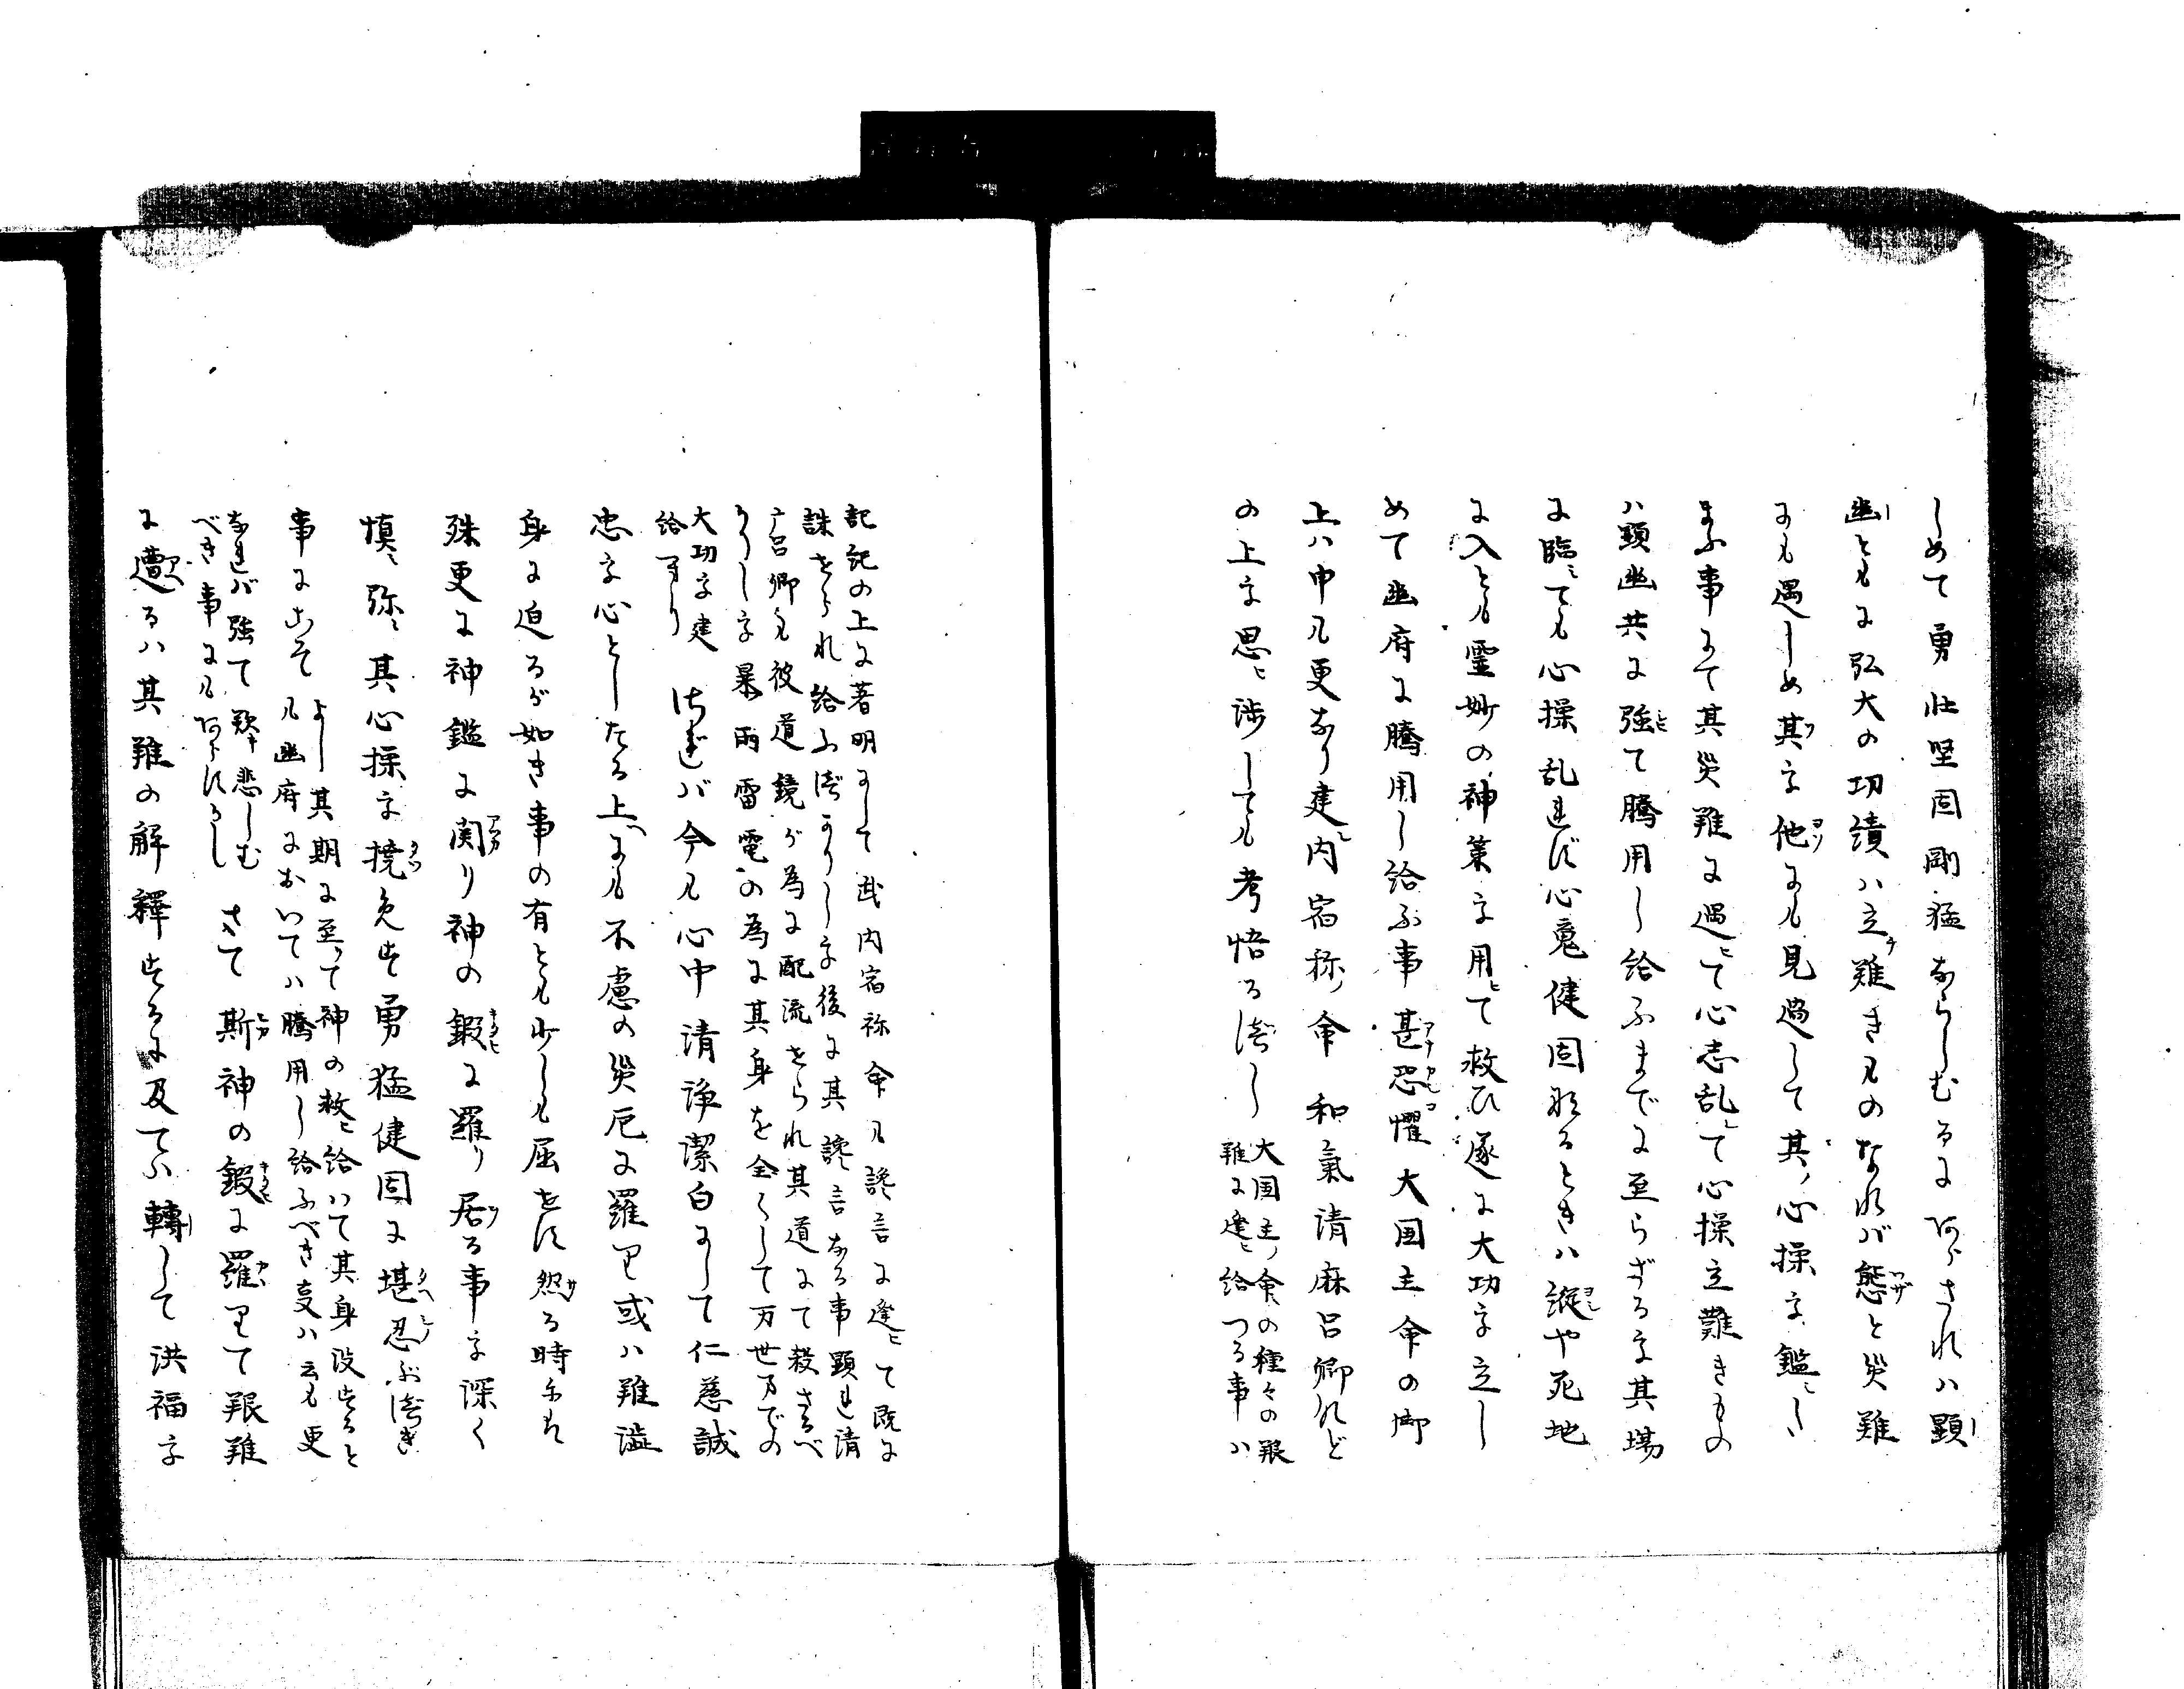 しめて勇壮堅固剛猛ならしむるにあらされハ顕
幽ともに弘大の功績ハ立難きものなれバ態と災難
にも遇しめ其を他にも見過して其心操を鑑し
まふ事にて其災難に遇て心志乱て心操立難きもの
ハ顕幽共に強て騰用し給ふまでに至らざるを其場
に臨ても心操乱れず心魂健固なるときハ縦や死地
に入とも霊妙の神策を用て救ひ遂に大功を立し
めて幽府に騰用し給ふ事甚恐懼大国主命の御
上ハ申も更なり建内宿祢命和氣清麻呂卿など
の上を思ヒ渉しても考悟るべし
大国主命の種々の艱
難に逢ヒ給つる事ハ
記記の上に著明にして武内宿祢命も讒言に逢ヒて既に
誅せられ給ふべかりしを後に其讒言なる事顕れ清
广呂卿も彼道鏡が為に配流せられ其道にて殺さるべ
かりしを暴雨雷電の為に其身を全くして万世までの
大功を建
給へり
されバ今も心中清浄潔白にして仁慈誠
忠を心としたる上にも不慮の災厄に羅り或ハ難澁
身に迫るが如き事の有とも少しも屈せず然る時にハ
殊更に神鑑に関り神の鍛に羅り居る事を深く
慎ミ弥ミ其心操を撓免ず勇猛健固に堪忍ぶべき
事にこそ
よし其期に至て神の救ヒ給ハて其身没するとも
幽府においてハ騰用し給ふべき事ハ云も更
なれバ強て歎キ悲しむ
べき事にもあらずかし
さて斯神の鍛に羅りて艱難
に遭るハ其難の解釋するに及てハ轉して洪福を